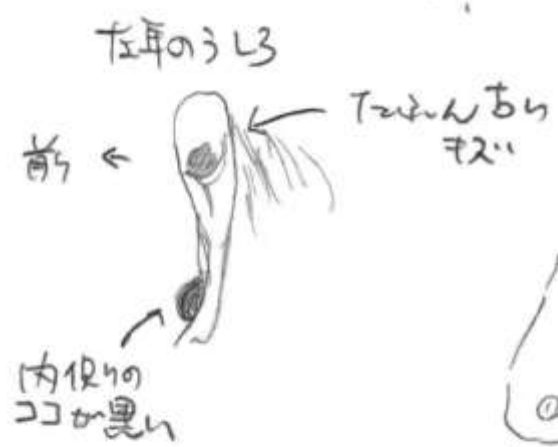 左耳のうしろ
前 ←
たぶん古い
キズ
内側の
ココが黒い
①